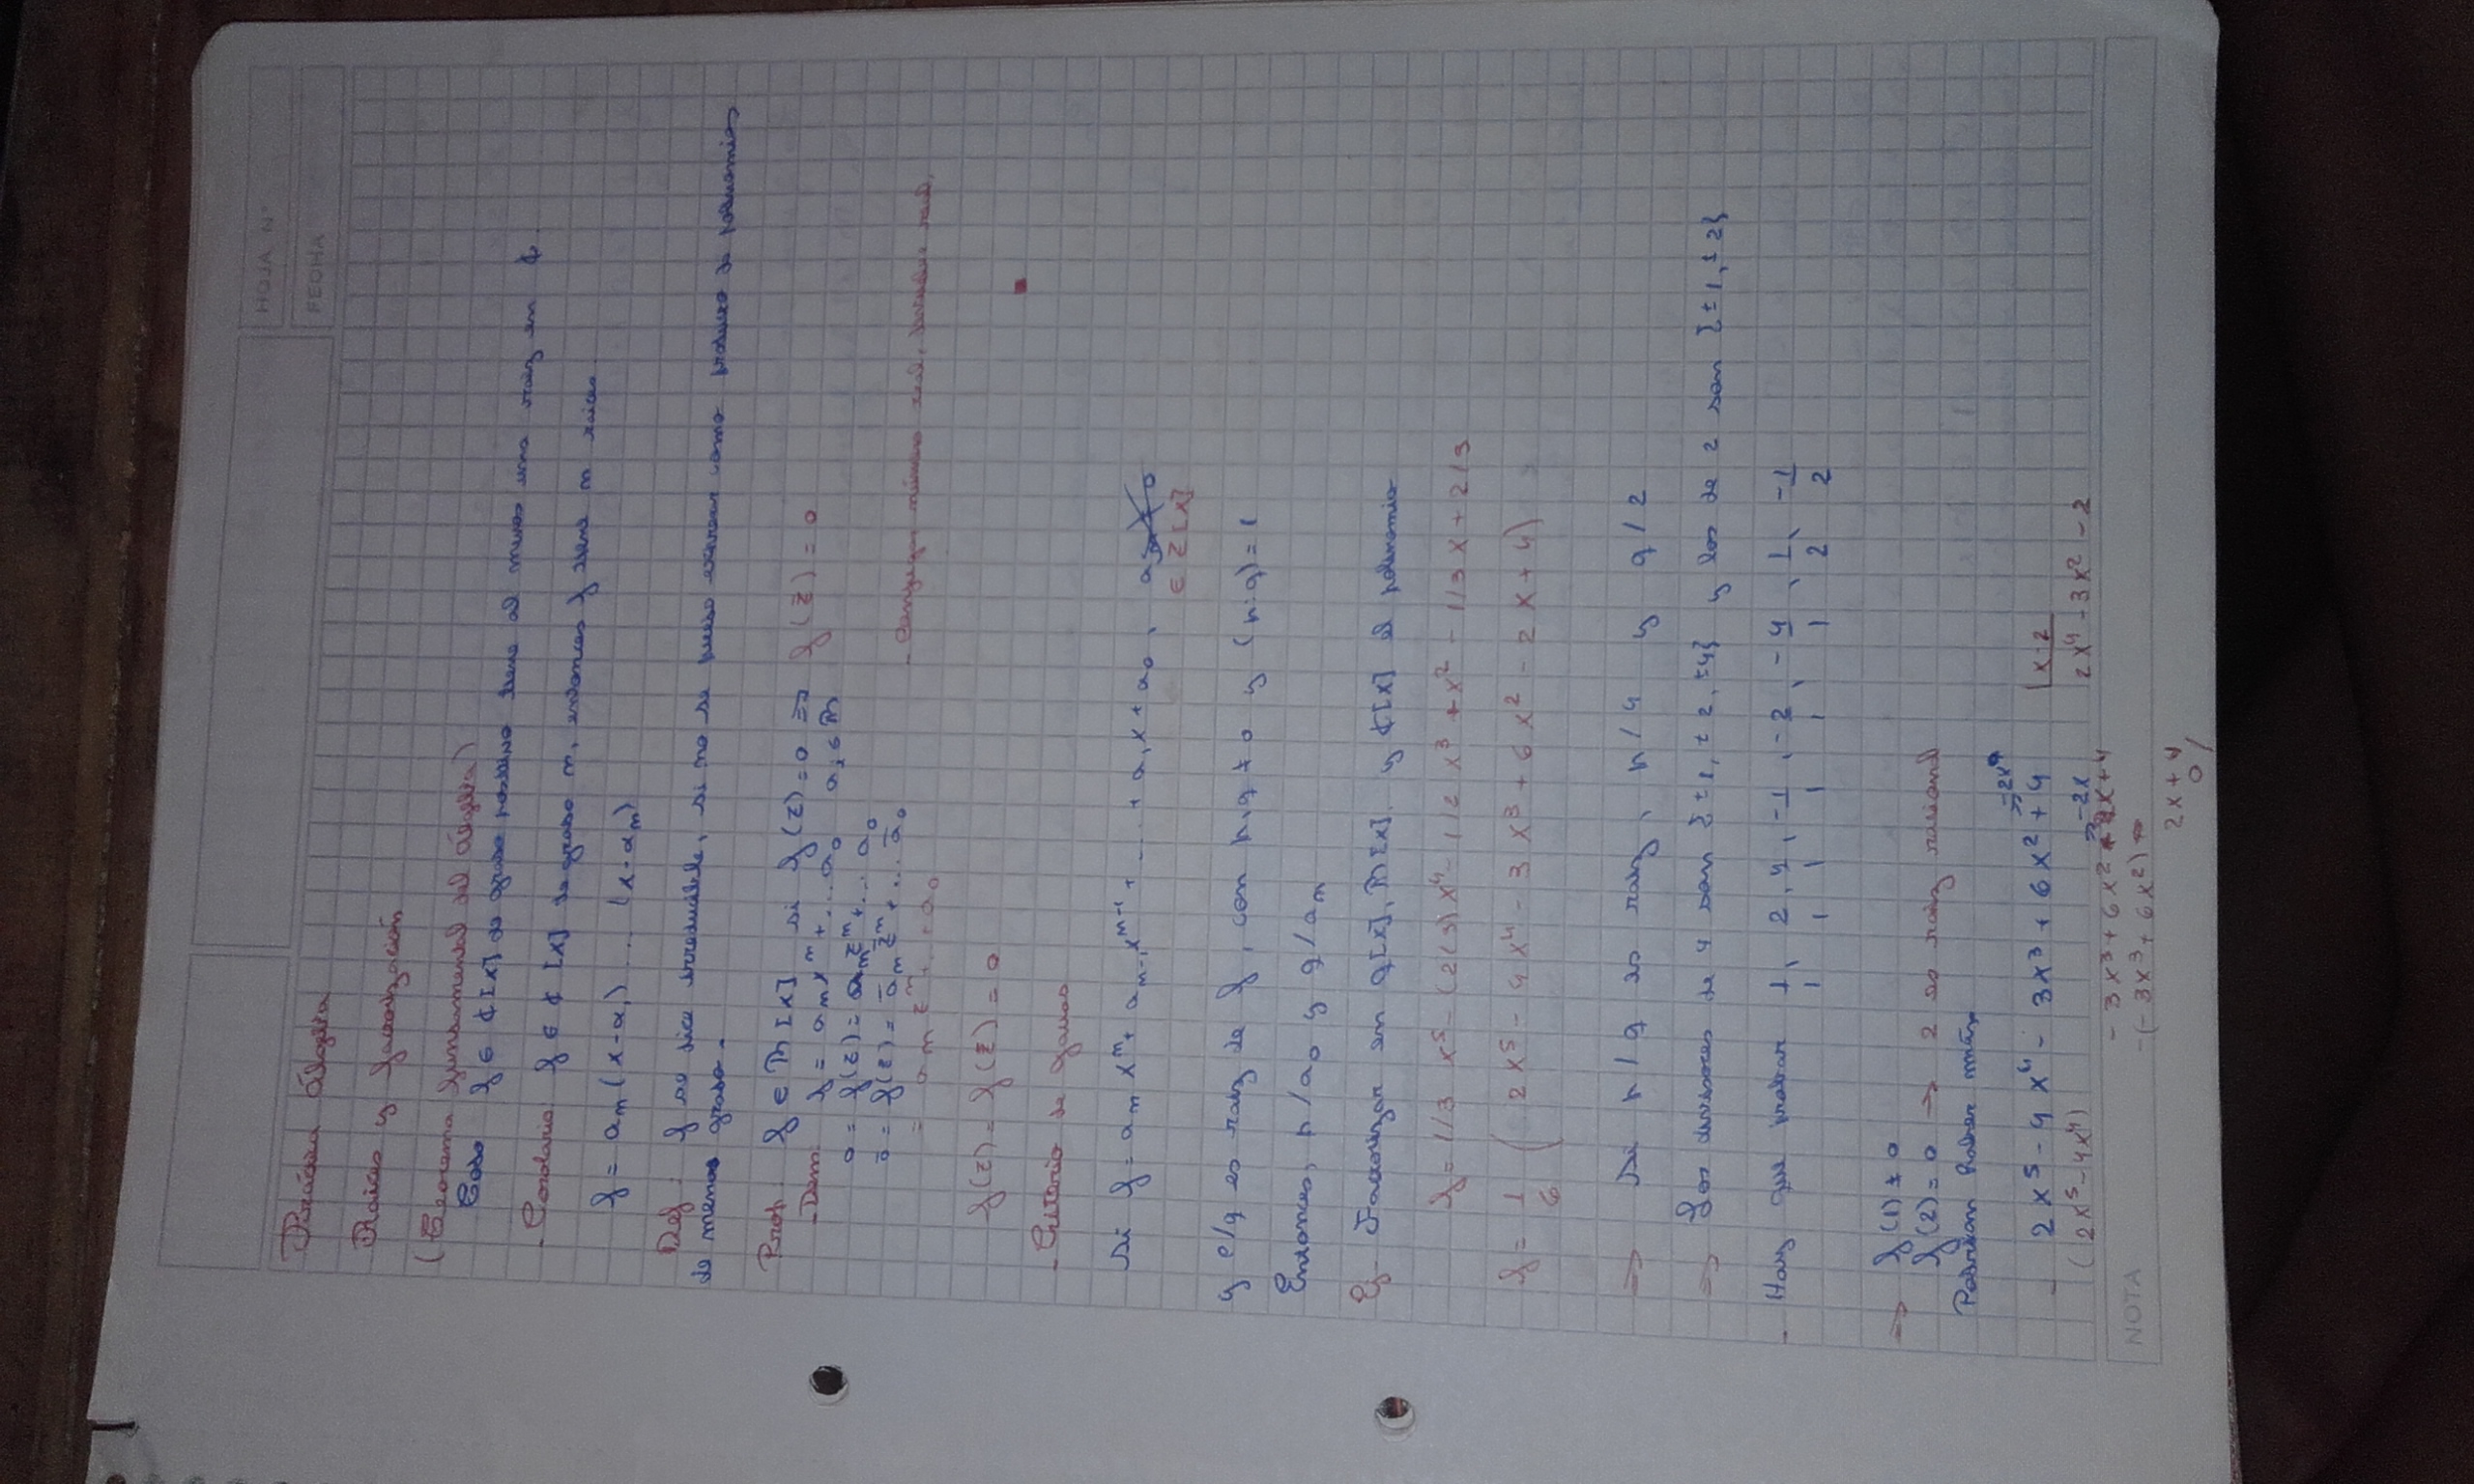 HOJA Nº
FECHA
Práctica Álgebra
Raíces y factorización
(Teorema fundamental del Álgebra)
Todo f ∈ ℂ[x] de grado positivo tiene al menos una raíz en ℂ.
- Corolario: f ∈ ℂ[x] de grado n, entonces f tiene n raíces.
f = aₙ(x-α₁) ... (x-αₙ)
Def: f se dice irreducible, si no se puede expresar como producto de polinomios
de menos grado.
Prop: f ∈ ℝ[x] si f(z)=0 ⇒ f(z̄) = 0
- Dem: f = aₙxⁿ+...a₀ aᵢ ∈ ℝ
0 = f(z) = aₙzⁿ+... a₀
0̄ = f(z) = āₙ z̄ⁿ+... ā₀
= aₙ zⁿ+...a₀
- Conjugar número real, real.
f(z) = f(z̄) = 0
- Criterio de Gauss
Si f = aₙxⁿ + aₙ₋₁xⁿ⁻¹ + ... + a₁x + a₀,
∈ Z[x]
y p/q es raíz de f, con p,q ≠ 0 y (p:q) = 1
Entonces, p/a₀ y q/aₙ
Ej- Factorizar en Q[x], ℝ[x], y ℂ[x] el polinomio
f = 1/3 x⁵ - (2/3)x⁴ - 1/2 x³ + x² - 1/3 x + 2/3
f = 1/6 ( 2x⁵ - 4x⁴ - 3x³ + 6x² - 2x + 4)
⇒ Si p/q es raíz, p/4 y q/2
⇒ Los divisores de 4 son {±1, ±2, ±4} y los de 2 son {±1, ±2}
- Hay que probar 1/1, 2/1, 4/1, -1/1, -2/1, -4/1, 1/2, -1/2
⇒ f(1) ≠ 0
f(2) = 0 → 2 es raíz racional
Podrían haber más
- 2x⁵ - 4x⁴ - 3x³ + 6x² + 4 |x-2
(2x⁵ - 4x⁴) ⇒ -2x 2x⁴ - 3x² - 2
- 3x³ + 6x² 2x + 4
-(-3x³ + 6x²)
2x + 4
0/
NOTA